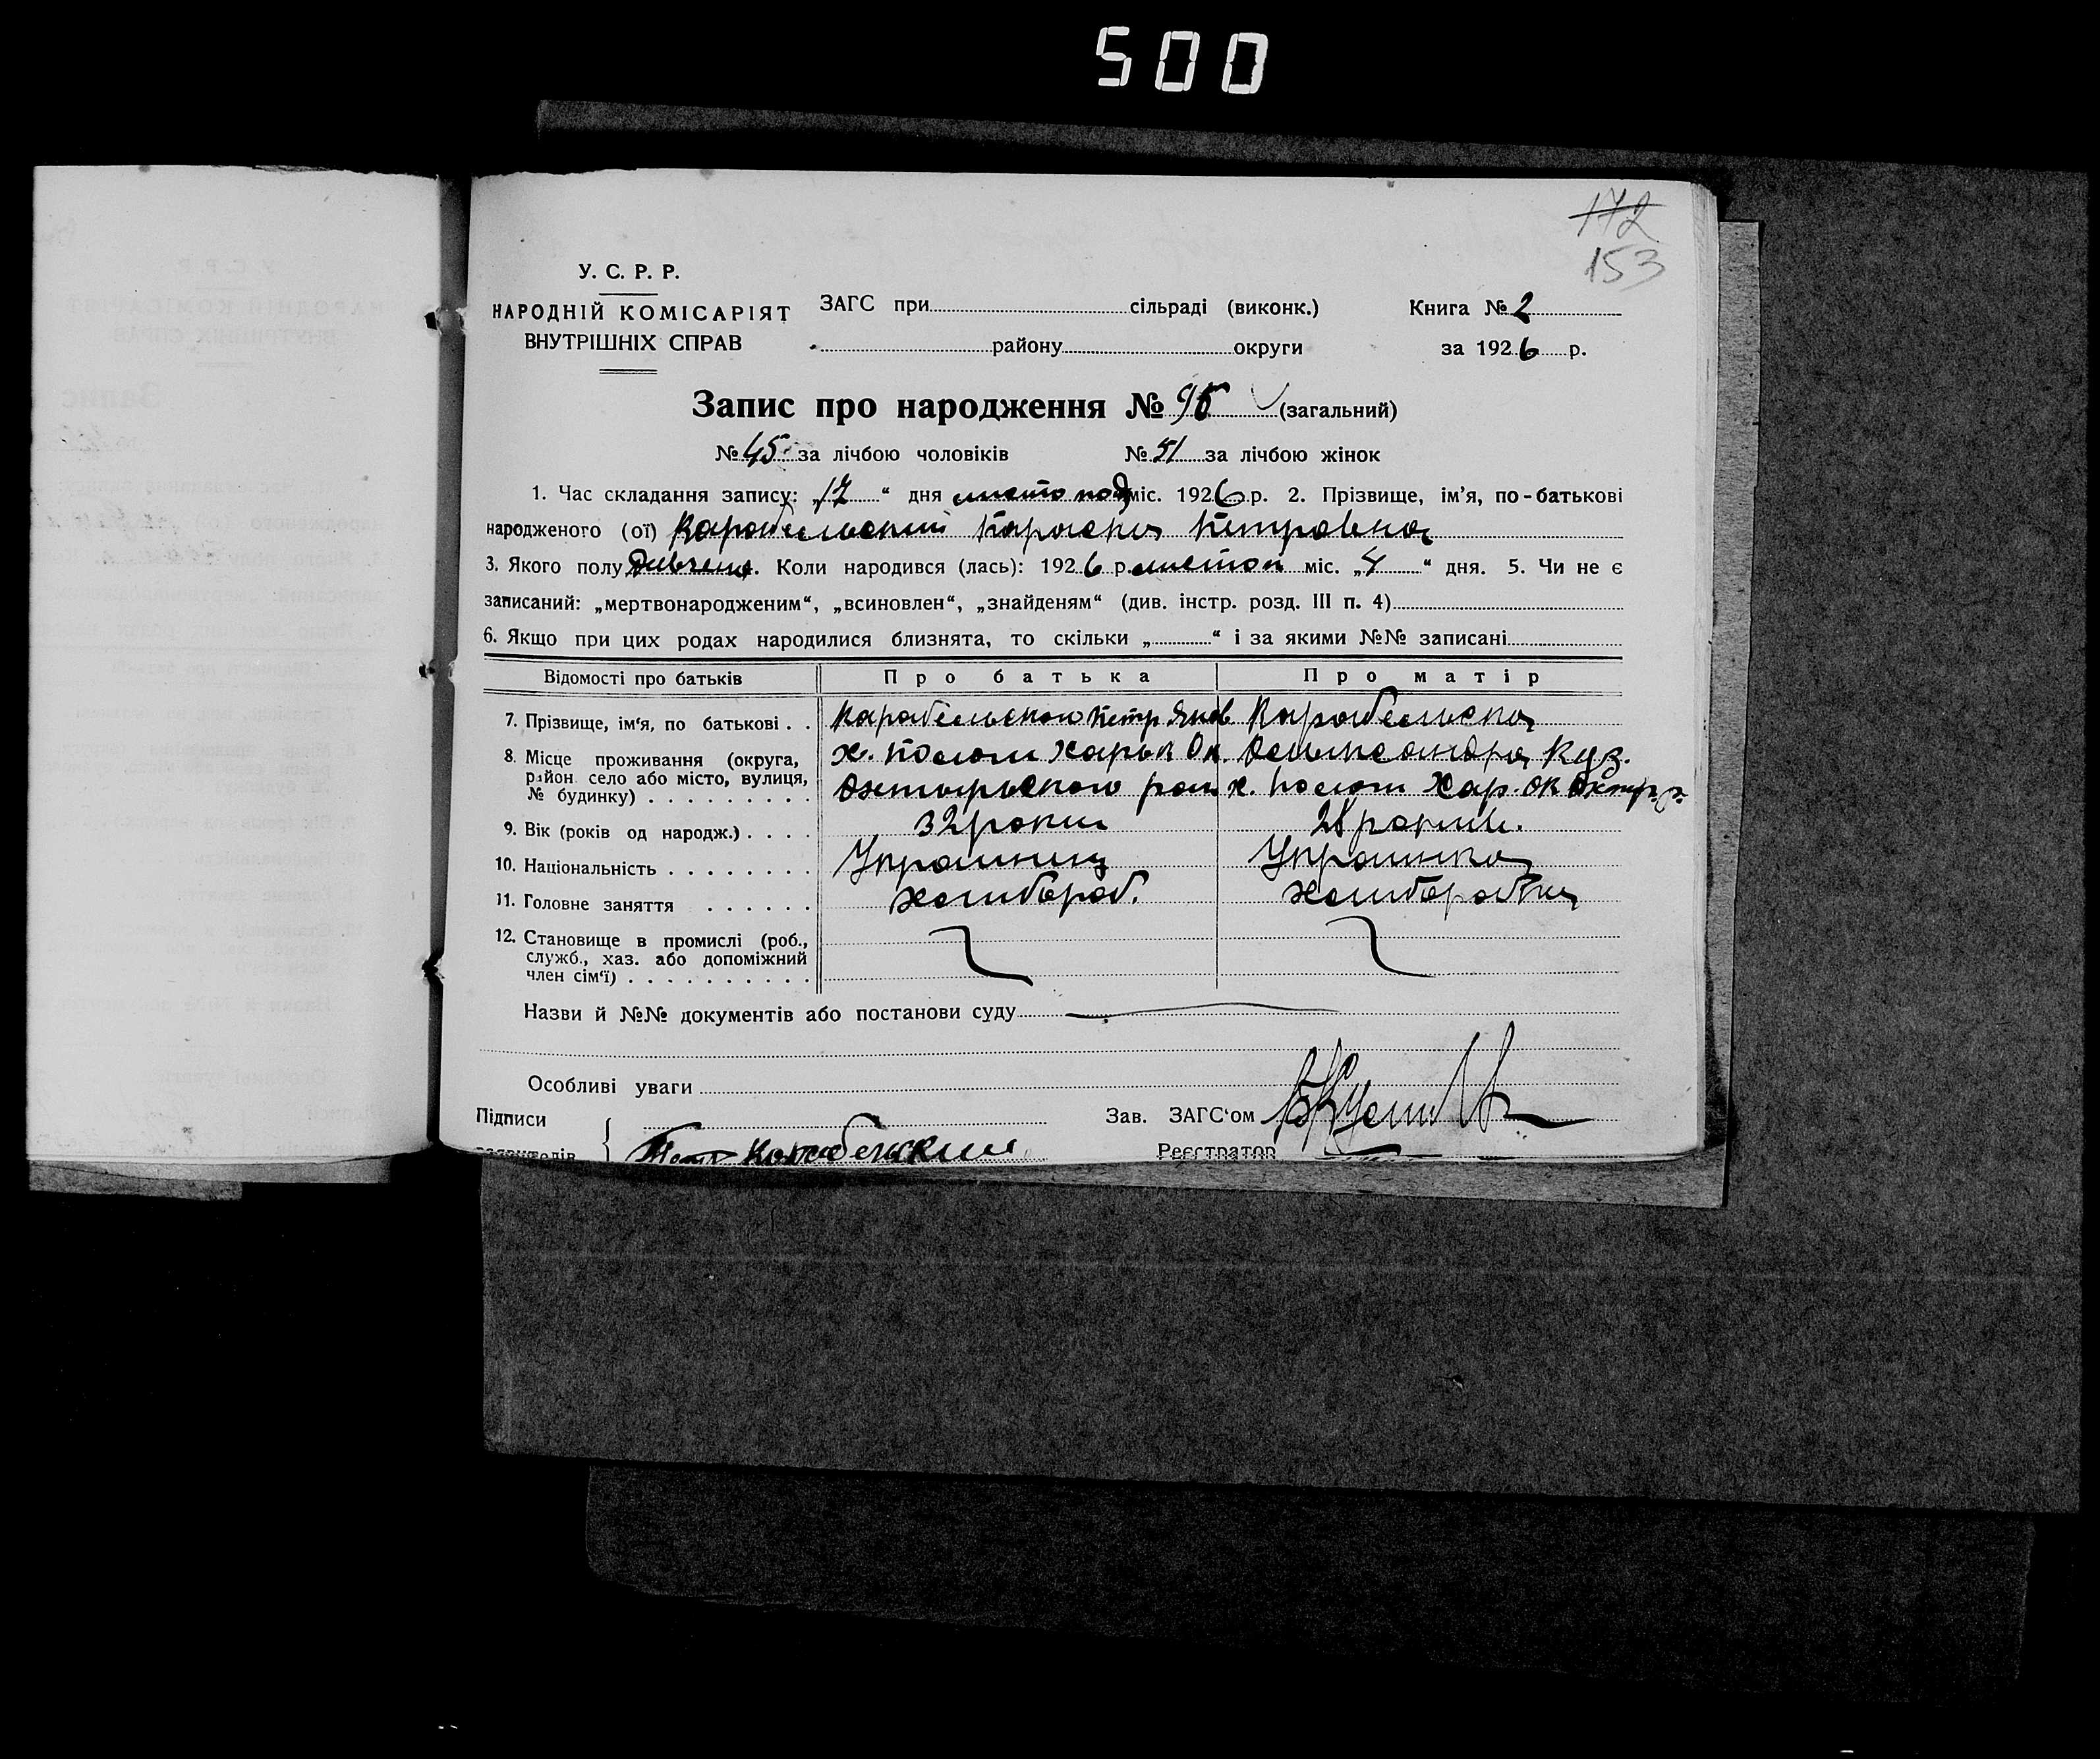 500
172
153
У. С. Р. Р.
НАРОДНІЙ КОМІСАРІЯТ
ВНУТРІШНІХ СПРАВ
ЗАГС при сільраді (виконк.)
району округи
Книга № 2
за 1926 р.
Запис про народження № 96 (загальний)
№ 45 за лічбою чоловіків № 51 за лічбою жінок
1. Час складання запису: 17 " дня листопад міс. 1926 р. 2. Прізвище, ім'я, по-батькові
народженого (ої) Карабельский Параска Петровна
3. Якого полу Дивчена. Коли народився (лась): 1926 р. листоп міс. „4" дня. 5. Чи не є
записаний: „мертвонародженим", „всиновлен", „знайденям" (див. інстр. розд. III п. 4)
6. Якщо при цих родах народилися близнята, то скільки „ " і за якими №№ записані
Відомості про батьків Про батька Про матір
7. Прізвище, ім'я, по батькові . . Карабельского Петр Яков Карабельска
8. Місце проживання (округа, х. Харьк Ок. Олександра Куз.
район село або місто, вулиця,
№ будинку) . . . . . . . . . Охтирьского раи х. Хар. Ок Охтир. р.
9. Вік (років од народж.) . . . . 32 роки 28 роки
10. Національність . . . . . . . . Украинец Украинка
11. Головне заняття . . . . . . Хлибороб. Хлиборобка
12. Становище в промислі (роб.,
служб., хаз. або допоміжний
член сім'ї) . . . . . . . . . .
Назви й №№ документів або постанови суду
Особливі уваги
Підписи Зав. ЗАГС'ом
Петр Карабельский Реєстратор